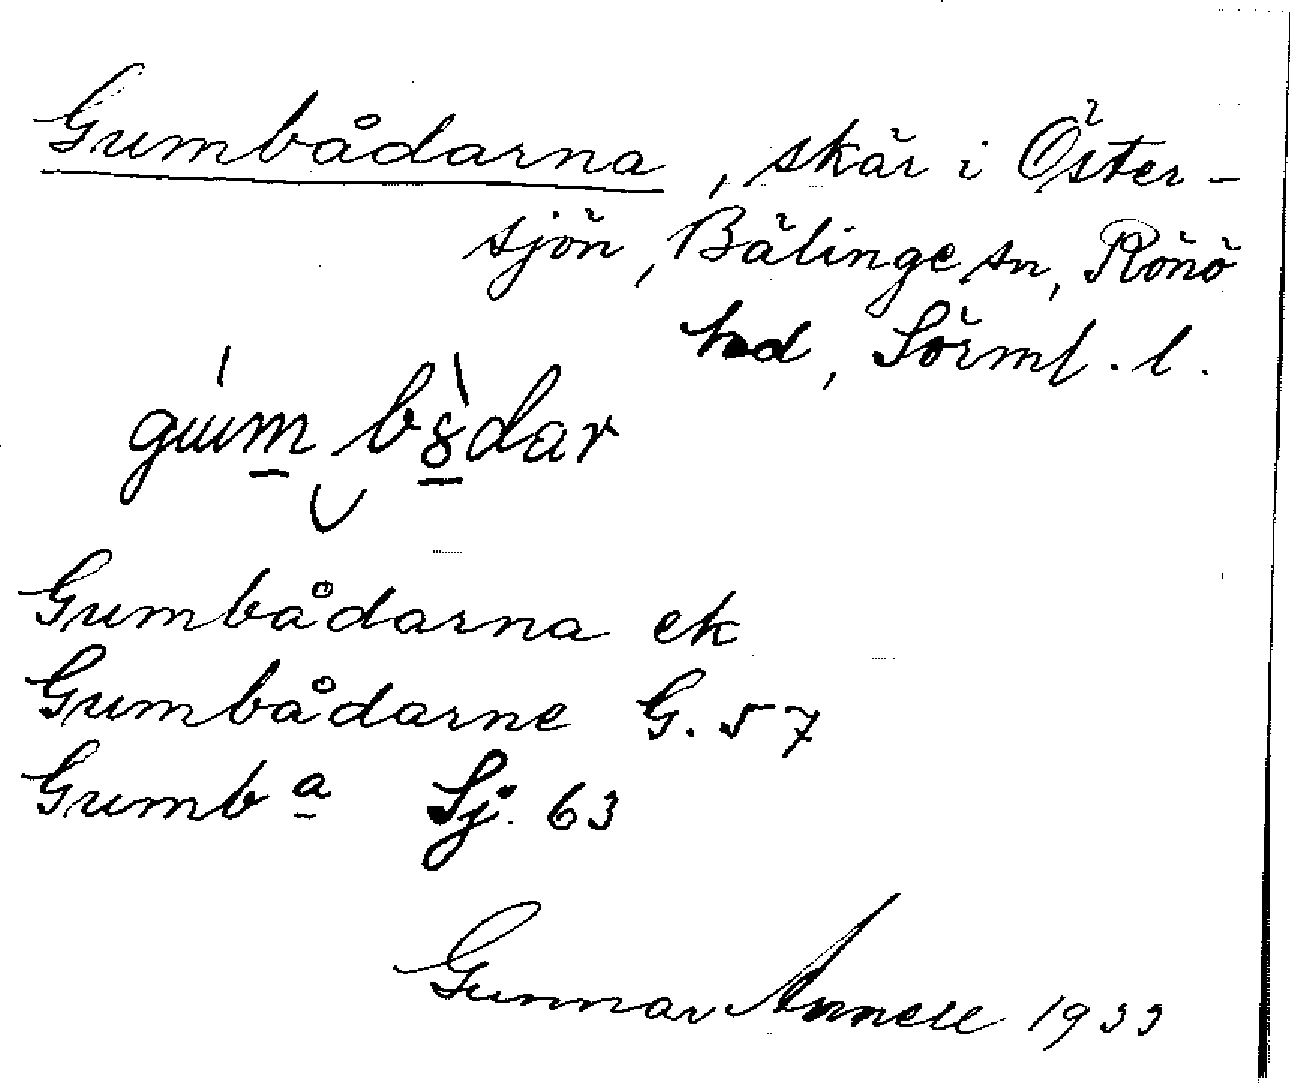 Gumbådarna, skär i Öster-
sjön, Bälinge sn, Rönö
hd, Sörml. l.
Gumbådarna ek
Gumbådarne G. 57
Gumb a Sj. 63
Gunnar Annell 1933